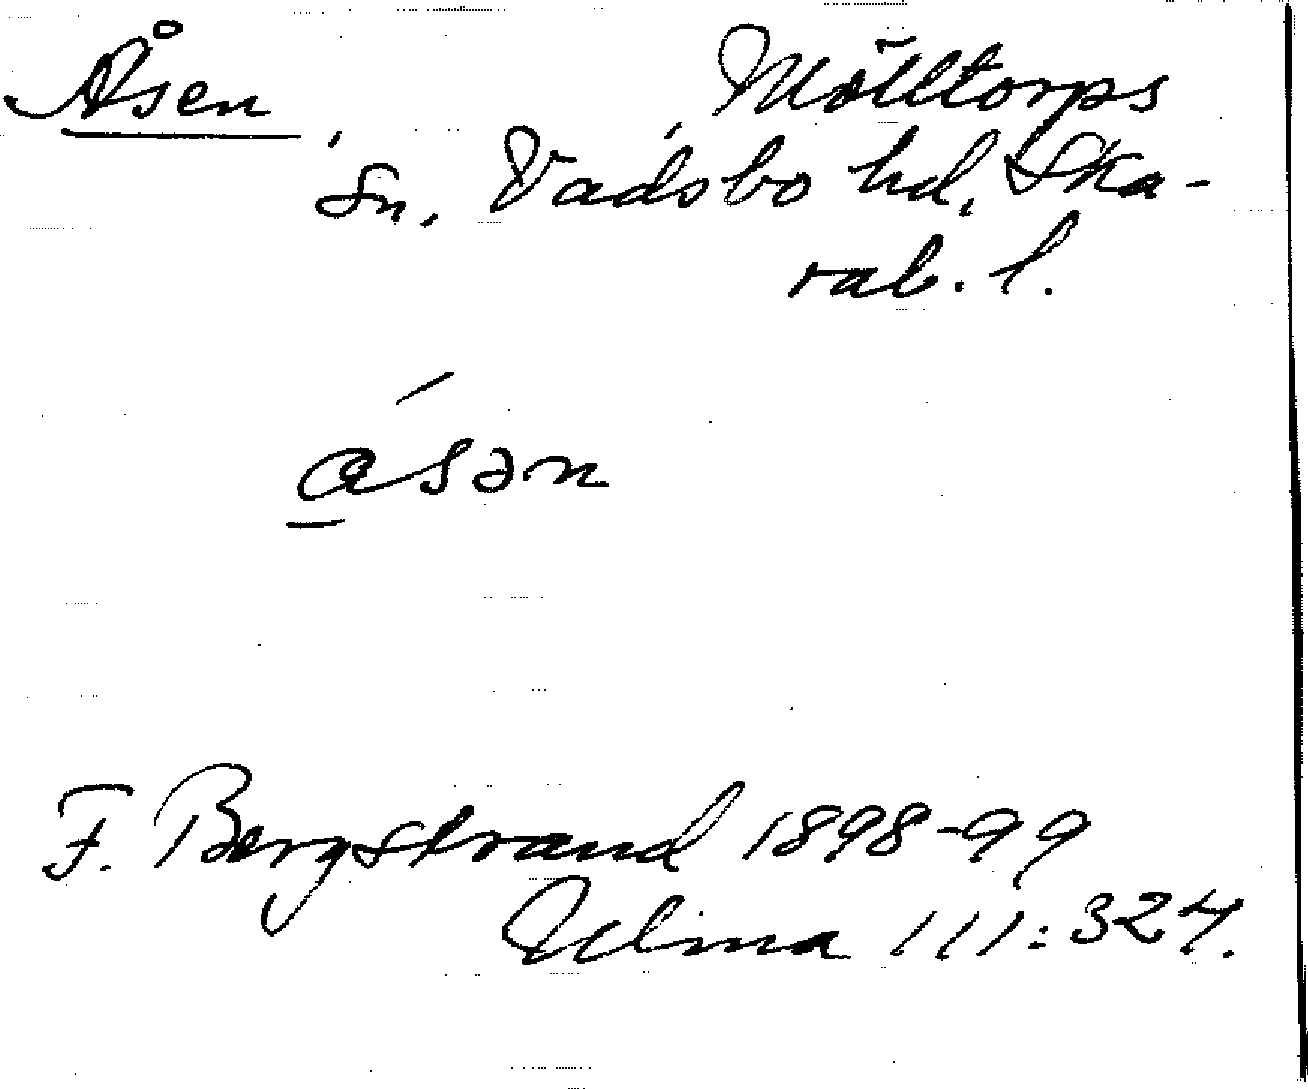 Åsen Mölltorps
sn. Vadsbo hd, Ska-
rab. l.
åsən
F. Bergstrand 1898-99
Ulma 111:324.